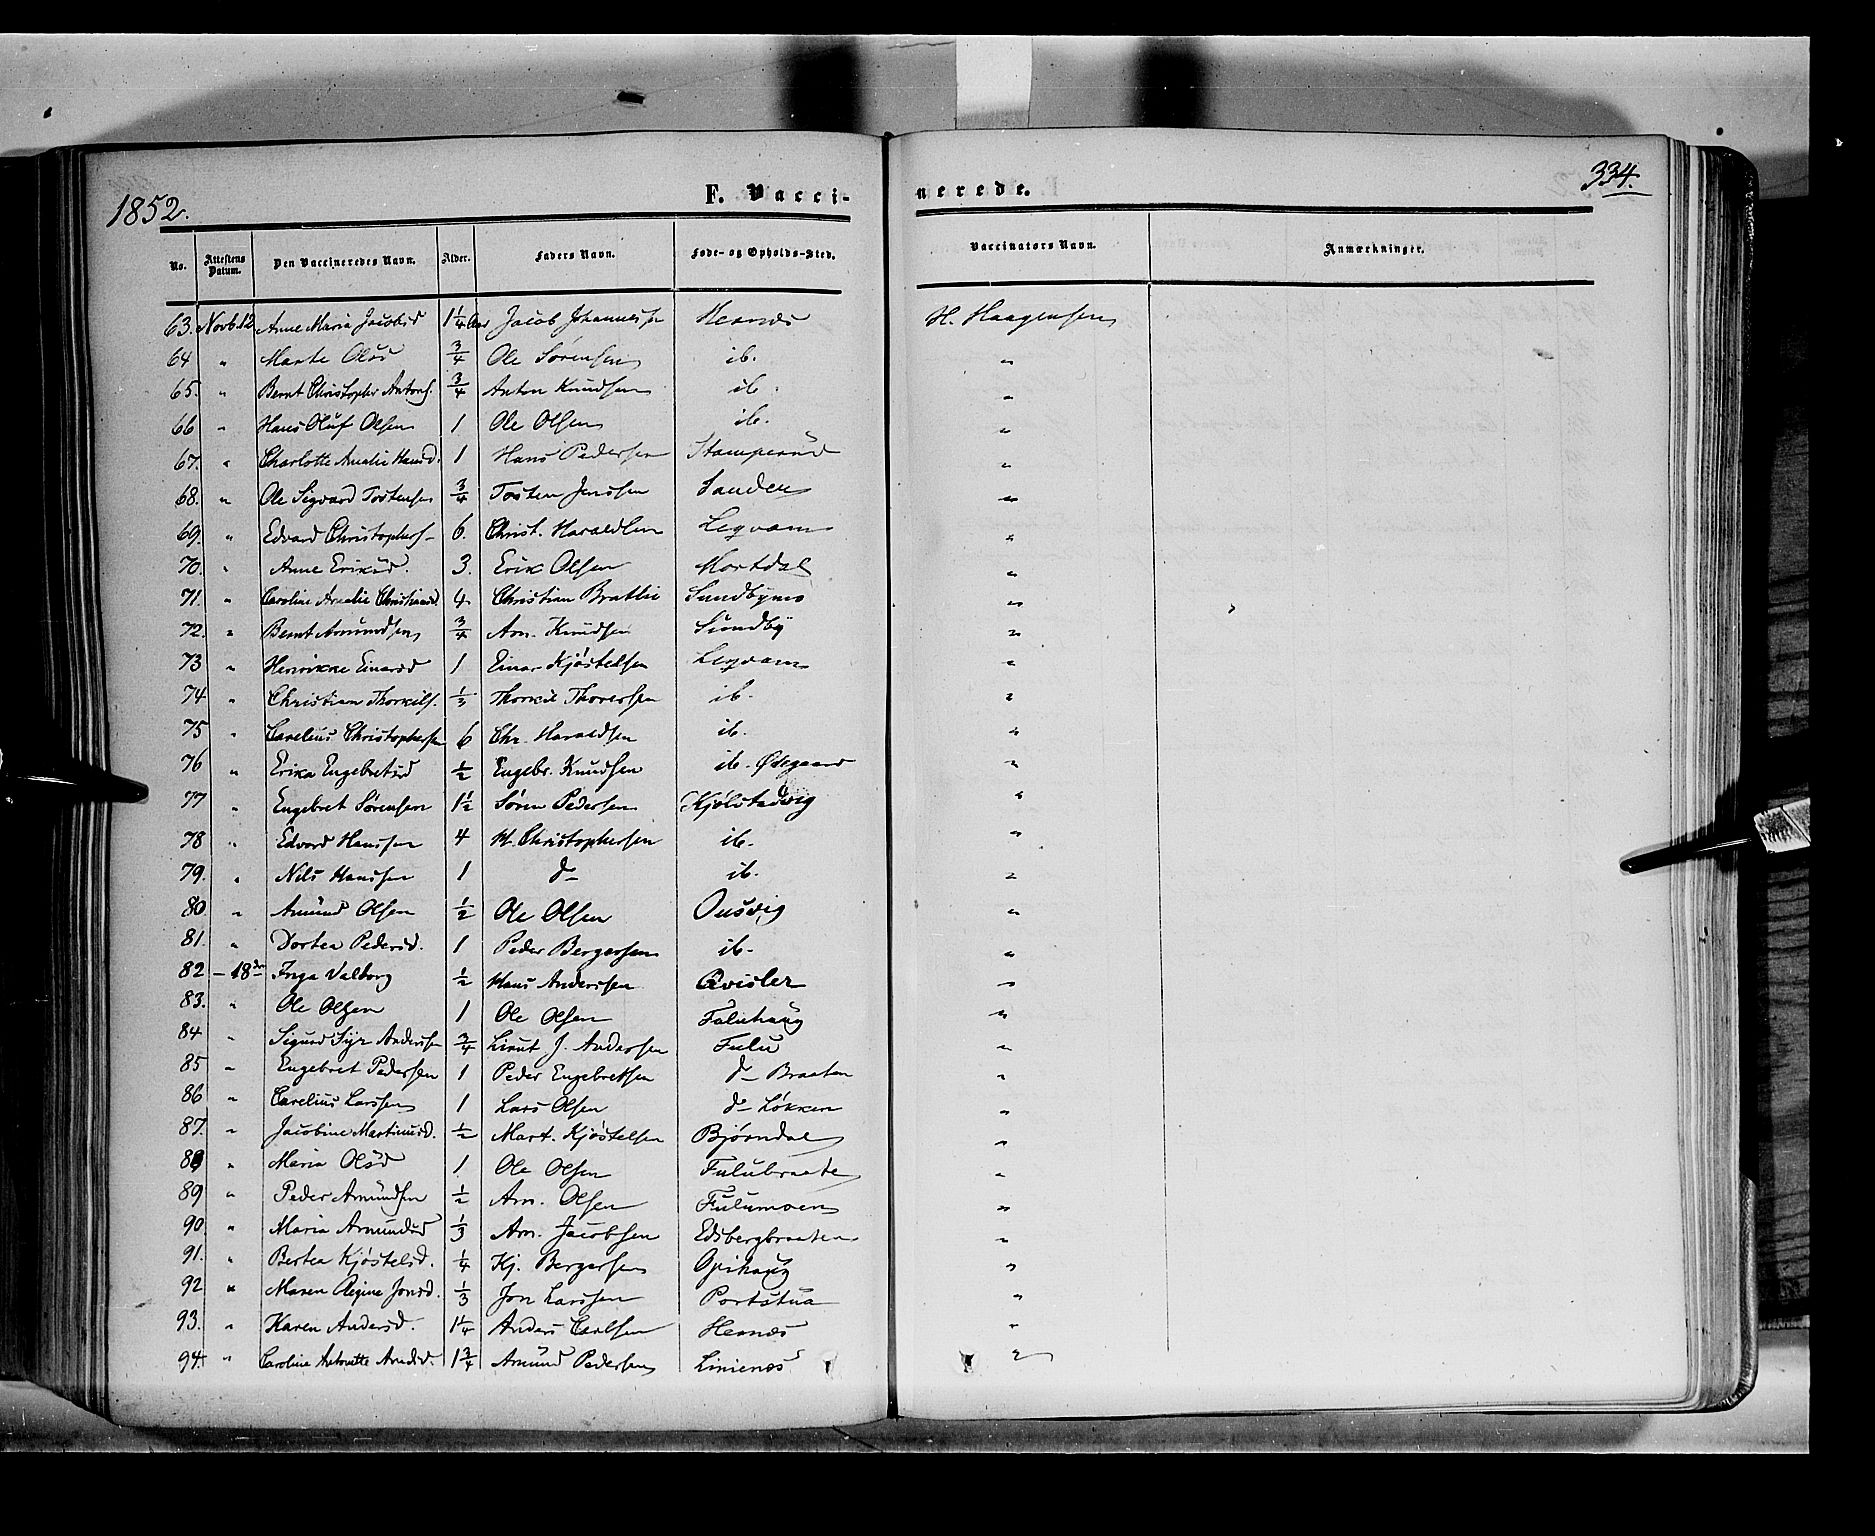 1852.
F. Vacci-
nerede.
334.
No. Attestens Datum. Den Vaccineredes Navn. Alder. Faders Navn. Føde- og Opholds-Sted. Vaccinators Navn. Anmærkninger.
63. Novb. 12 Anne Maria Jacobsd 1 1/4 Aar Jacob Johannessen Hernæs H. Haagensen
64 " Marte Olsd 3/4 Ole Sørensen ib. "
65. " Bernt Christopher Antons. 3/4 Anton Knudsen ib. "
66 " Hans Oluf Olsen 1 Ole Olsen ib. "
67. " Charlotte Amalie Hansd. 1 Hans Pedersen Stamperud "
68. " Ole Sigvard Tostensen 3/4 Tosten Jenssen Sanden "
69. " Edvard Christophers- 6. Christ. Haraldsen Legvam "
70. " Anne Eriksd. 3. Erik Olsen Mortdal "
71. " Caroline Amalie Christiansd. 4. Christian Bratlie Sundbynes "
72. " Bernt Amundsen 3/4 Am. Knudsen Sundby "
73 " Henrikke Einarsd 1 Einar Kjøstelsen Legvam "
74 " Christian Thorkils. 1/3 Thorkil Thoressen ib. "
75 " Carelius Christophersen 6 Chr. Haraldsen ib. "
76 " Erika Engebretsd 1/2 Engebr. Knudsen ib. Ødegaard "
77 " Engebret Sørensen 1 1/2 Søren Pedersen Kjølstadvig "
78 " Edvard Hanssen 4 H. Christophersen ib. "
79. " Nils Hanssen 1 d- ib. "
80 " Amund Olsen 1/2 Ole Olsen Ousvig "
81. " Dortea Pedersd. 1 Peder Bergersen ib. "
82 - 18de Inga Valborg 1/2 Hans Anderssen Qvisler "
83. " Ole Olsen 1 Ole Olsen Fuluhaug "
84 " Sigurd Syr Anderssen 3/4 Lieut J. Anderssen Fulu "
85 " Engebret Pedersen 1 Peder Engebretsen d- Braaten "
86 " Carelius Larssen 1 Lars Olsen d- Løkken "
87. " Jacobine Martinusd. 1/2 Mart. Kjøstelsen Bjørndal "
88 " Maria Olsd 1 Ole Olsen Fulubraate "
89 " Peder Amundsen 1/2 Am. Olsen Fulumoen "
90. " Maria Amundsd 1/3 Am. Jacobsen Edsbergbraaten "
91. " Bertea Kjøstelsd. 1/4 Kj. Bergersen Opihaug "
92 " Maren Regine Jonsd. 1/3 Jon Larssen Portstua "
93. " Karen Andersd. 1 1/4 Anders Carlsen Hernæs "
94. " Caroline Antonette Amdsd. 1 3/4 Amund Pedersen Linienæs "